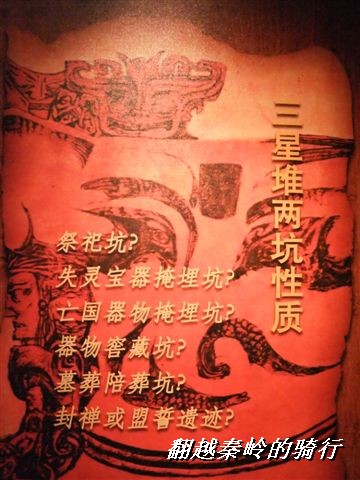 三星堆两坑性质
祭祀坑?
失灵宝器掩埋坑?
亡国器物掩埋坑?
器物窖藏坑?
墓葬陪葬坑?
封禅或盟誓遗迹?
翻越秦岭的骑行